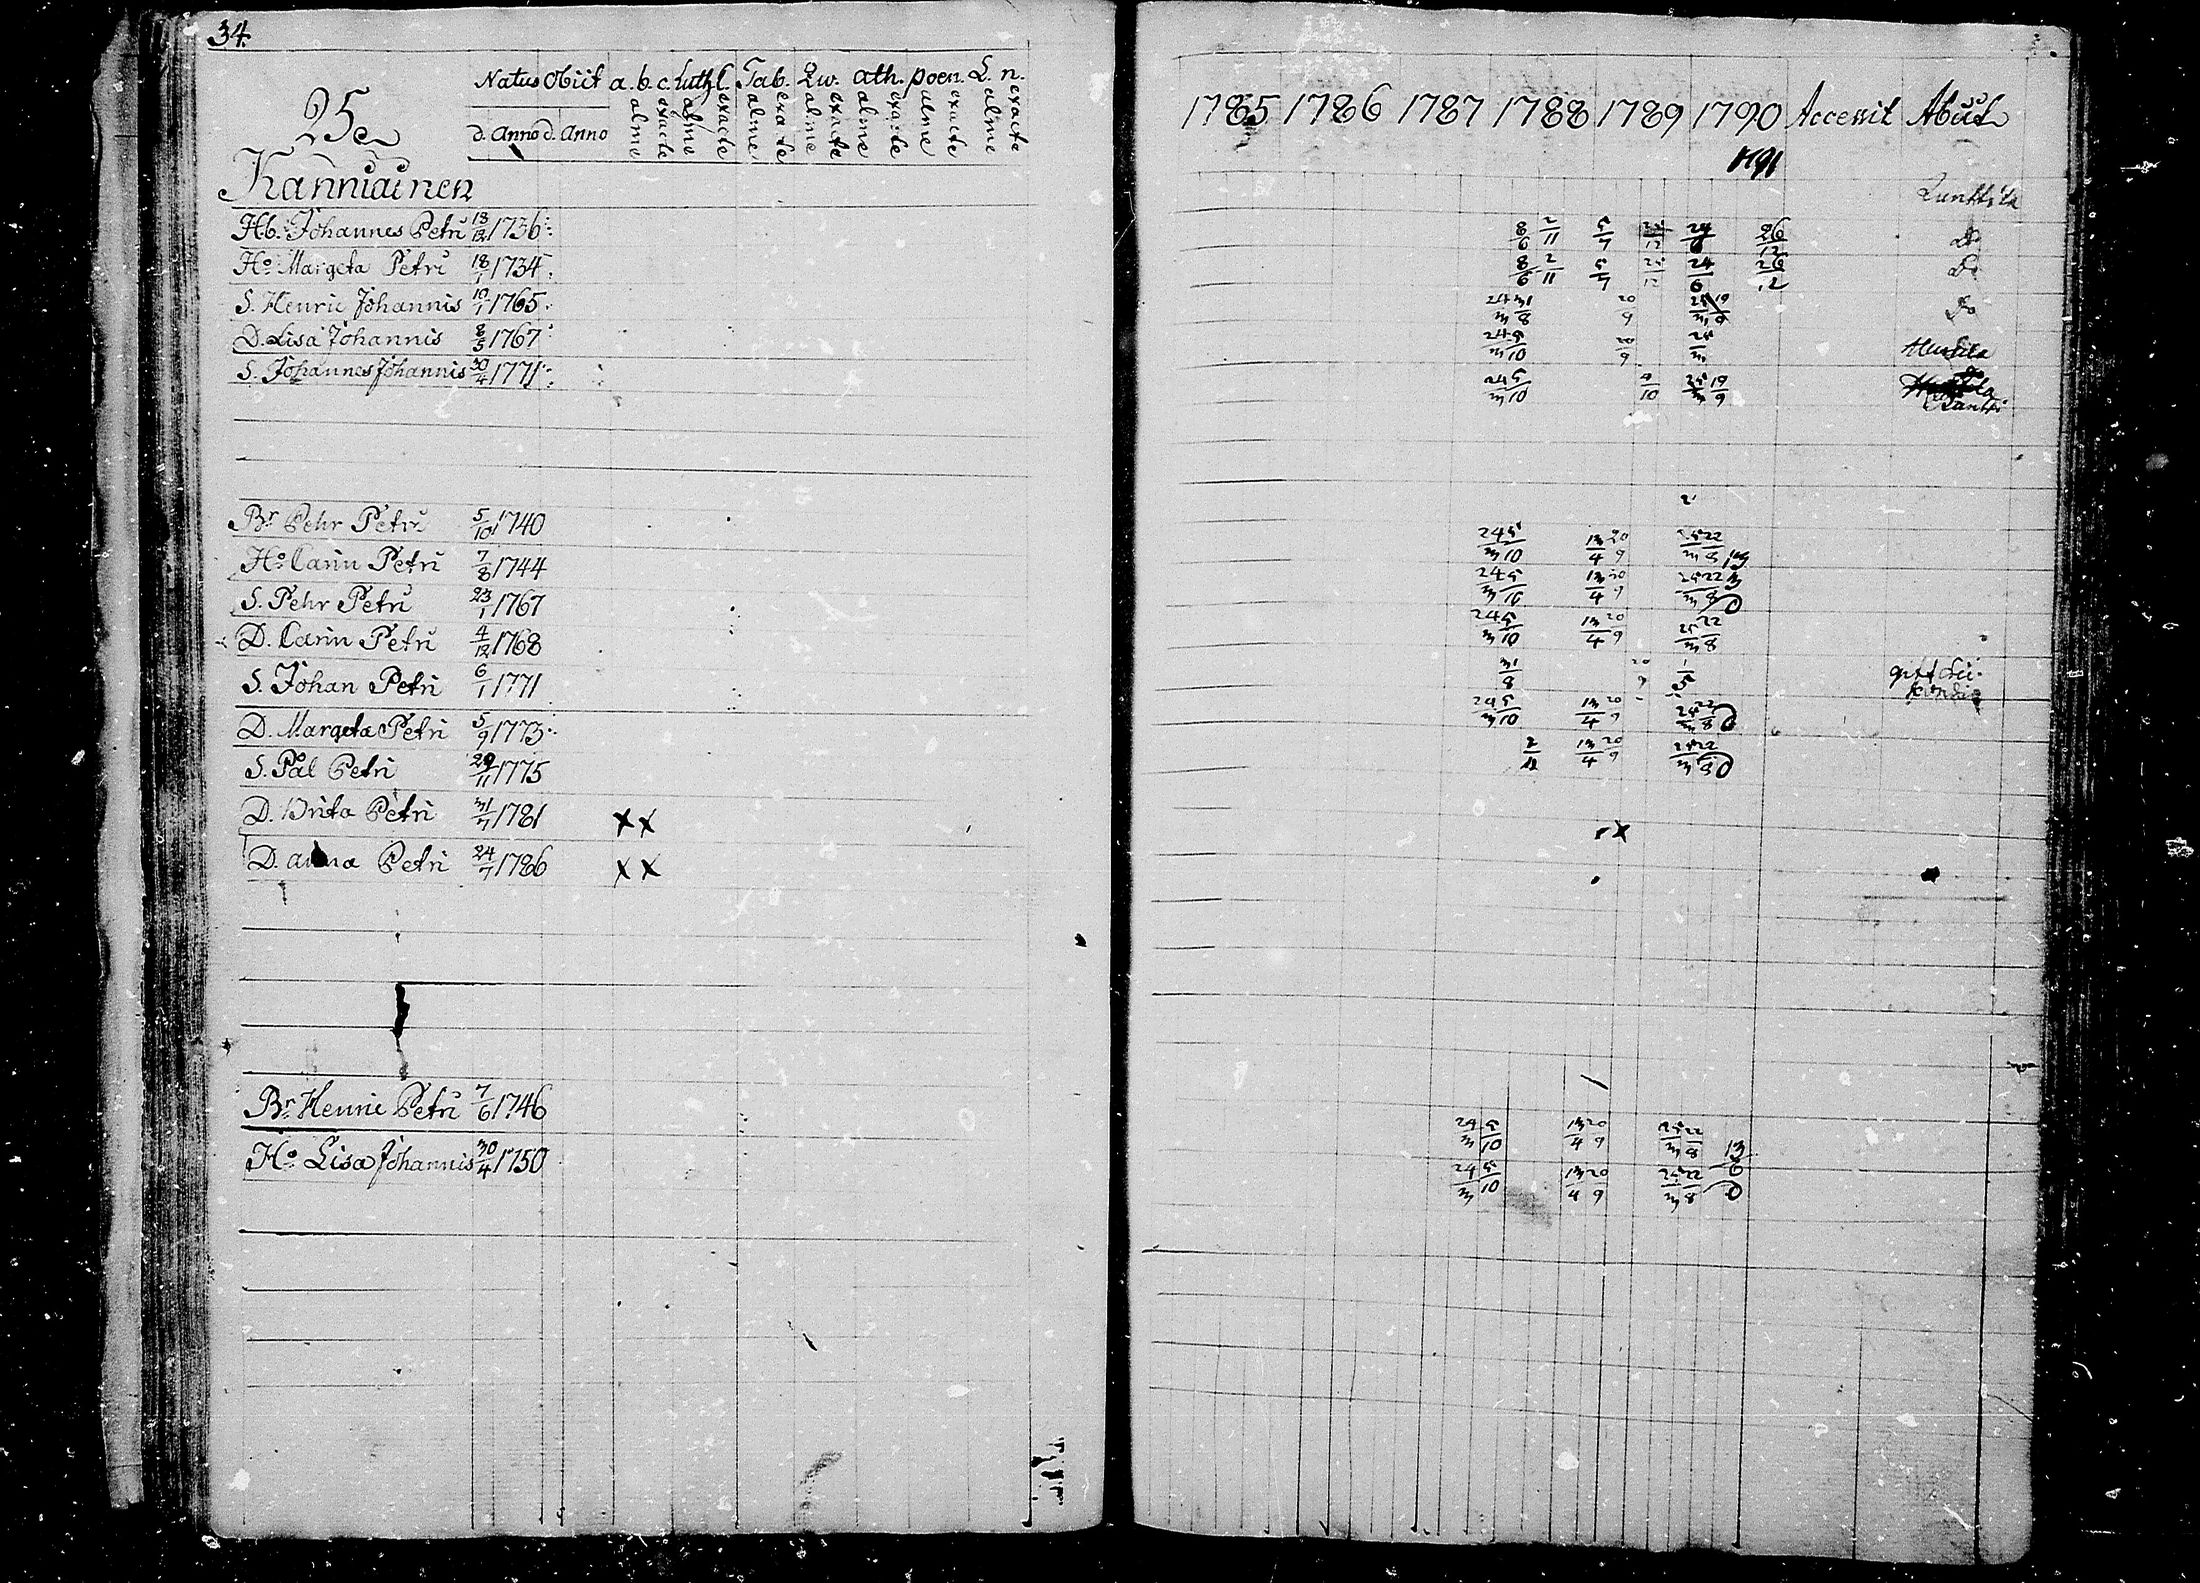 34.
Natus Obiit a. b. c. Luth. C. Tab. Qw. ath. poen. L. n.
d. Anno d. Anno alme exacte alme exacte alme exacte alme exacte alme exacte alme exacte alme exacte
25
Kanniainen
Hb. Johannes Petri 13/12 1736
Ho Margeta Petri 18/1 1734
S. Henric Johannis 10/1 1765
D. Lisa Johannis 8/5 1767
S. Johannes Johannis 30/4 1771
Br Pehr Petri 5/10 1740
Ho Carin Petri 7/8 1744
S. Pehr Petri 23/1 1767
D. Carin Petri 4/12 1768
S. Johan Petri 6/1 1771
D. Margeta Petri 5/9 1773
S. Pål Petri 29/11 1775
D. Brita Petri 31/7 1781 x x
D. anna Petri 24/7 1786 x x
Br Henric Petri 7/6 1746
Ho Lisa Johannis 30/4 1750
1785 1786 1787 1788 1789 1790 Accessit Abiit
1791
8/6 2/11 5/7 24/6 26/12 Do
8/6 2/11 5/7 25/12 24/6 26/12 Do
24/3 31/8 20/9 25/3 19/9 Do
24/3 5/10 20/9 25/3
24/3 5/10 4/10 25/3 19/9
24/3 5/10 13/4 20/9 25/3 22/8
24/3 5/10 13/4 20/9 25/3 22/8
24/3 5/10 13/4 20/9 25/3 22/8
31/8 20/9 1/5
24/3 5/10 13/4 20/9 25/3 22/8
2/11 13/4 20/9 25/3 22/8
x
24/3 5/10 13/4 20/9 25/3 22/8 13/6
24/3 5/10 13/4 20/9 25/3 22/8